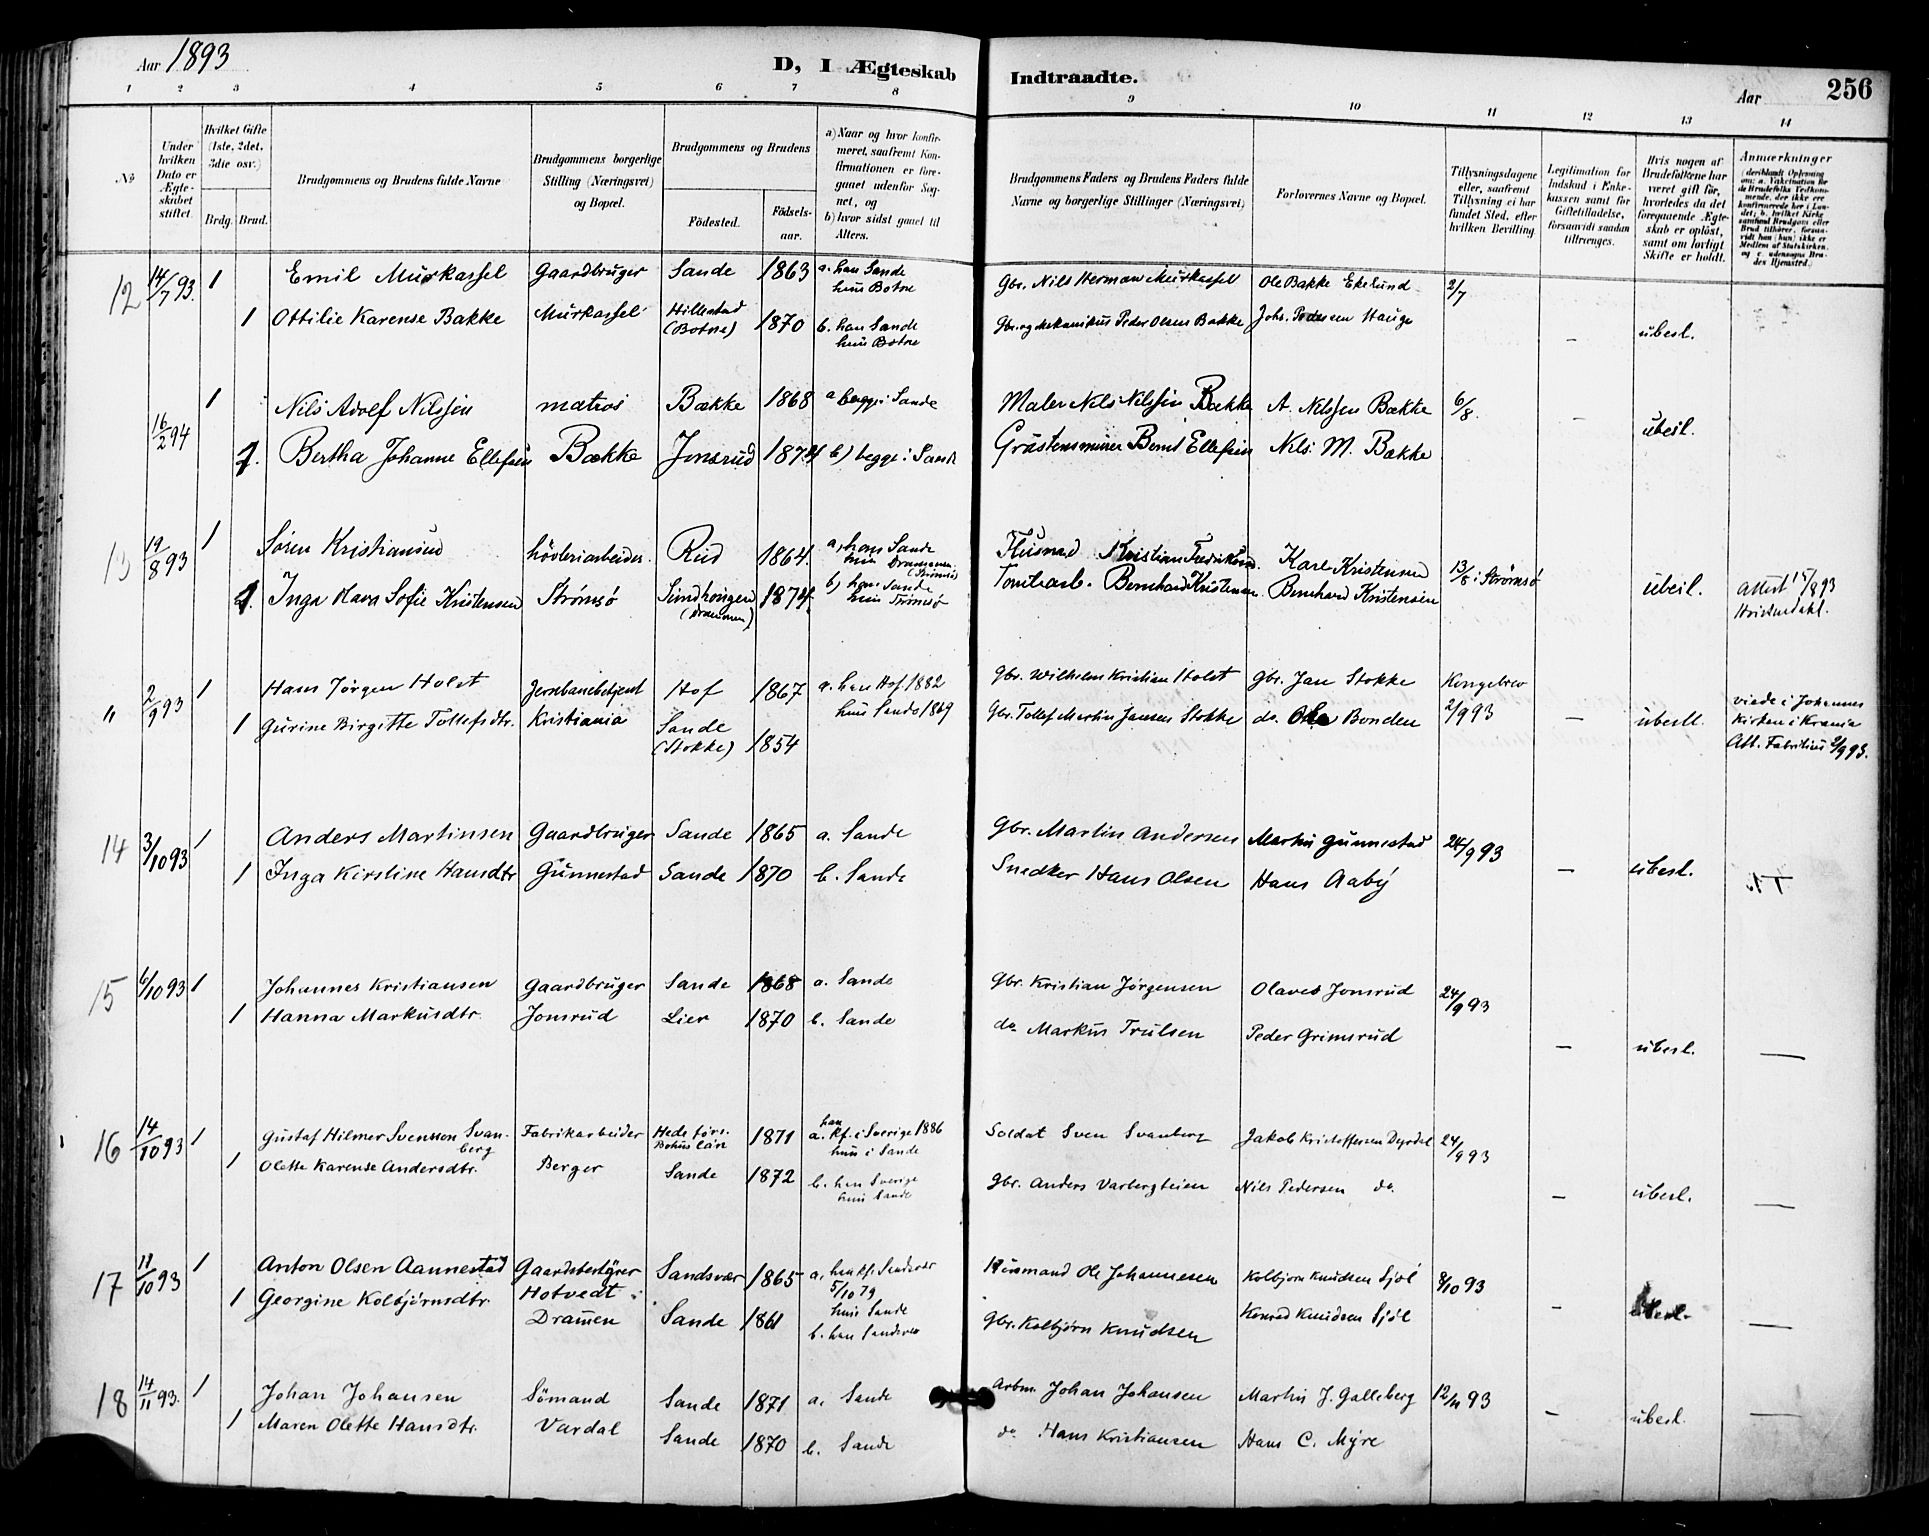 Aar 1893
D, I Ægteskab Indtraadte.
Aar 256
1 2 3 4 5 6 7 8 9 10 11 12 13 14
No
Under hvilken Dato er Ægteskabet stiftet.
Hvilket Gifte (1ste, 2det, 3die osv.)
Brdg. Brud.
Brudgommens og Brudens fulde Navne
Brudgommens borgerlige Stilling (Næringsvei) og Bopæl.
Brudgommens og Brudens
Födested.
Födselsaar.
a) Naar og hvor konfirmeret, saafremt Konfirmationen er foregaaet udenfor Sognet, og b) hvor sidst gaaet til Alters.
Brudgommens Faders og Brudens Faders fulde Navne og borgerlige Stillinger (Næringsvei)
Forlovernes Navne og Bopæl.
Tillysningsdagene eller, saafremt Tillysning ei har fundet Sted, efter hvilken Bevilling.
Legitimation for Indskud i Enkekassen samt for Giftetilladelse, forsaavidt saadan tiltrænges.
Hvis nogen af Brudefolkene har været gift för, hvorledes da det foregaaende Ægteskab er oplöst, samt om lovligt Skifte er holdt.
Anmærkninger
12 14/7 93. 1 Emil Murkassel Gaardbruger Sande 1863 a. han Sande hun Botne Gbr. Nils Herman Murkassel Ole Bakke Ekelund 2/7
1 Ottilie Karense Bakke Murkassel Hillestad (Botne) 1870 b. han Sande hun Botne Gbr. og Mekanikus Peder Olsen Bakke Johs. Pedersen Hauge — ubesl.
16/2 94 1 Nils Adolf Nilssen matros Bække 1868 a begge i Sande Maler Nils Nilssen Bække A. Nilssen Bække 6/8. — ubesl.
1. Bertha Johanne Ellefsen Bække Jonsrud 1874 b) begge i Sande Gråstensmurer Bernt Ellefsen Nils M. Bække
13 19/8 93 1 Sören Kristiansen hövleriarbeider. Rud 1864. a) han Sande hun Drammen (Strömsö) Kristian Fredriksen. Karl Kristensen 13/8 i Strömsö
1. Inga Hava Sofie Kristensen Strömsö (Drammen) 1874 b) han Sande hun Strömsö Tomtearb. Bernhard Kristensen. Bernhard Kristensen ubesl. Attest 14/8 93
" 2/9 93 1 Hans Jörgen Holst Jernbanebetjent Hof 1867 a. han Hof 1882 hun Sande 1869 Gbr. Wilhelm Kristian Holst Gbr. Jan Stokke Kongebrev 2/9 93
1 Gurine Birgitte Tollefsdtr. Kristiania Sande (Stokke) 1854 Gbr. Tollef Martin Jansen Stokke do. Ole Bonden — ubesl. viede i Johannes Kirken i Krania Att. Fabritius 2/9 93.
14 3/10 93 1 Anders Martinsen Gaardbruger Sande 1865 a. Sande Gbr. Martin Andersen Martin Gunnestad 24/9 93
1 Inga Kirstine Hansdtr Gunnestad Sande 1870 b. Sande Snedker Hans Olsen Hans Aaby — ubesl.
15 6/10 93 1 Johannes Kristiansen Gaardbruger Sande 1868 a. Sande Gbr. Kristian Jørgensen Olaves Jonsrud 24/9 93
1 Hanna Markusdtr. Jonsrud Lier 1870 b. Sande do. Markus Trulsen Peder Grimsrud — ubesl. —
16 14/10 93 1 Gustaf Hilmer Svensson Svanberg Fabrikarbeider Hede förs. Bohus län 1871 a. han kf. i Sverige 1886 hun i Sande Soldat Sven Svanberg Jakob Kristoffersen Dyrdal 24/9 93
1 Olette Karense Andersdtr. Berger Sande 1872 b. han Sverige hun Sande Gbr. Anders Varbergteien Nils Pedersen do. — ubesl. —
17 11/10 93 1 Anton Olsen Aannestad Gaardsbestyrer Hotvedt Sandsvær 1865 a. han kf. Sandsvær 5/10 79 hun Sande Husmand Ole Johannesen Kolbjörn Knudsen Sjöl 8/10 93
1 Georgine Kolbjörnsdtr. Dramen Sande 1861 b. han Sandsvær Gbr. Kolbjörn Knudsen Konrad Knudsen Sjöl — ubesl. —
18 14/11 93. 1 Johan Johansen Sömand Sande 1871 a. Sande Arbm. Johan Johansen Martin J. Galleberg 12/11 93
1 Maren Olette Hansdtr. Vardal Sande 1870 b. Sande do Hans Kristiansen Hans C. Myre — ubesl. —